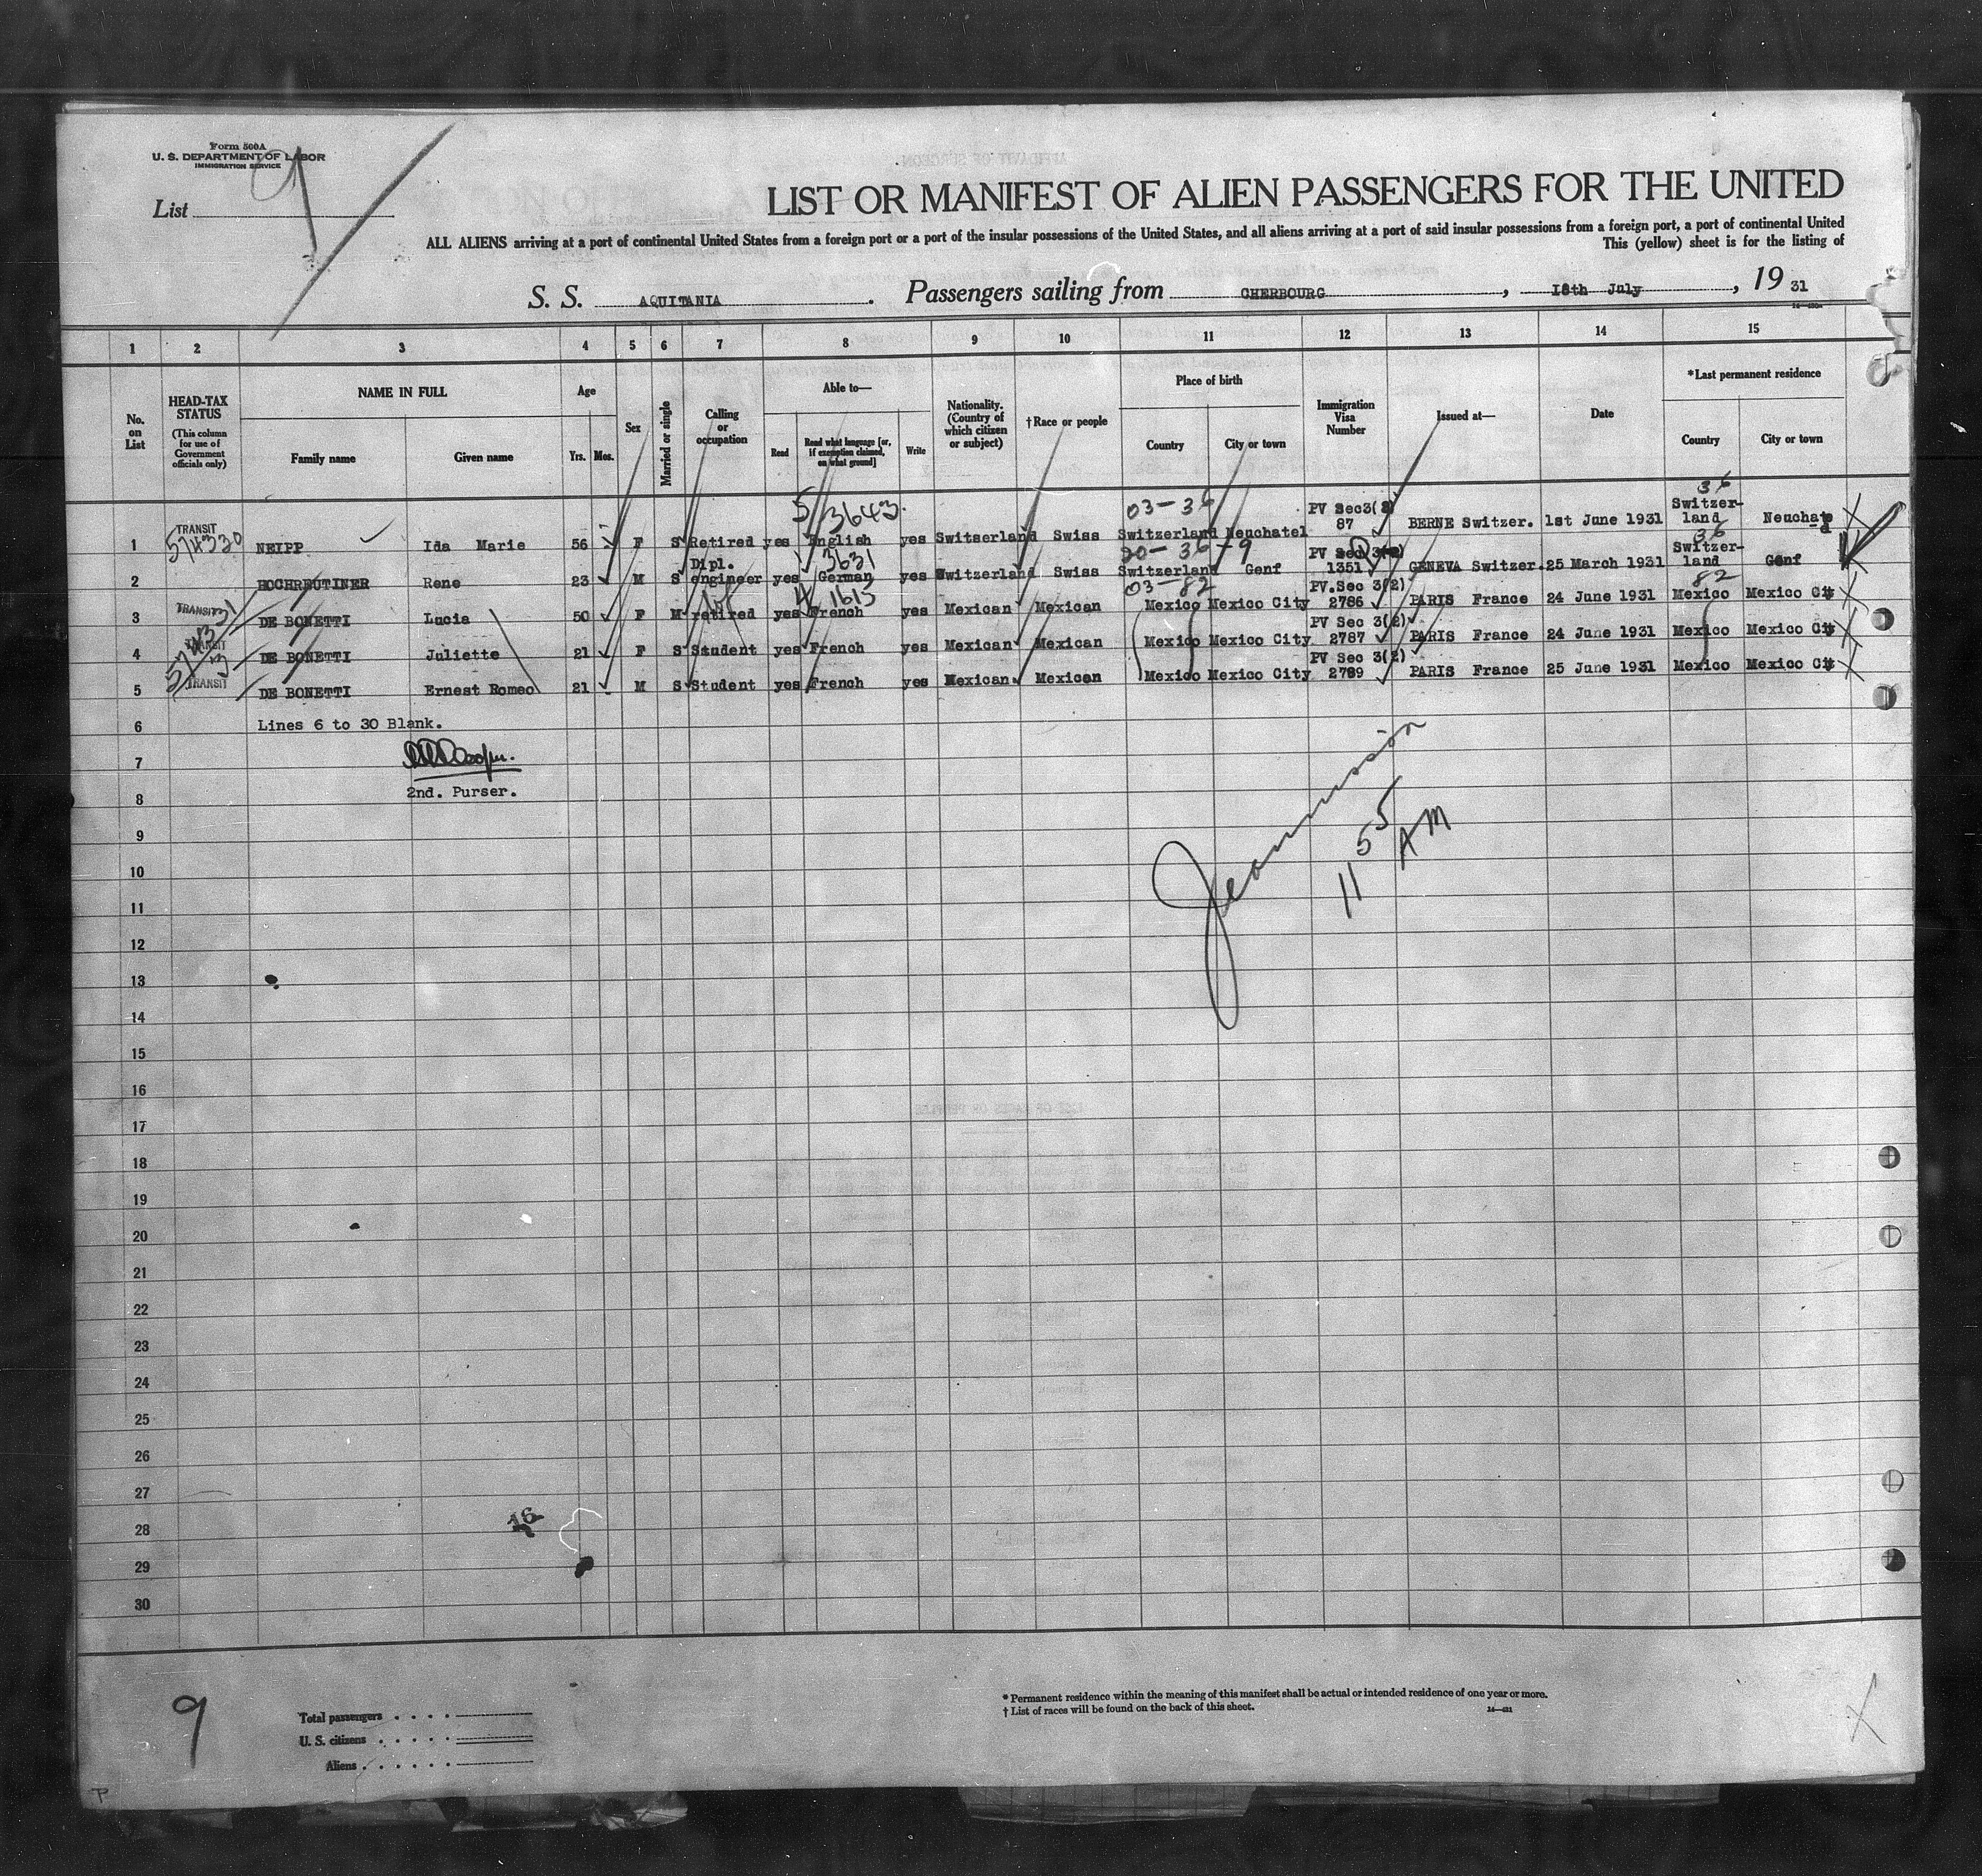 Form 500A
U. S. DEPARTMENT OF LABOR
IMMIGRATION SERVICE
List 9
LIST OR MANIFEST OF ALIEN PASSENGERS FOR THE UNITED
ALL ALIENS arriving at a port of continental United States from a foreign port or a port of the insular possessions of the United States, and all aliens arriving at a port of said insular possessions from a foreign port, a port of continental United
This (yellow) sheet is for the listing of
S. S. AQUITANIA . Passengers sailing from CHERBOURG , 18th July , 19 31
1 2 3 4 5 6 7 8 9 10 11 12 13 14 15
No. on List
HEAD-TAX STATUS
(This column for use of Government officials only)
NAME IN FULL
Family name
Given name
Age
Yrs.
Mos.
Sex
Married or single
Calling or occupation
Able to—
Read
Read what language [or, if exemption claimed, on what ground]
Write
Nationality. (Country of which citizen or subject)
† Race or people
Place of birth
Country
City or town
Immigration Visa Number
Issued at—
Date
*Last permanent residence
Country
City or town
5/3643. 03-36 36
1 TRANSIT 574330 NEIPP Ida Marie 56 F S Retired yes English yes Switzerland Swiss Switzerland Neuchatel PV Sec3(2) 87 BERNE Switzer. 1st June 1931 Switzer-land
3631 20-36-9 36
2 HOCHREUTINER Rene 23 M S Dipl. engineer yes German yes Switzerland Swiss Switzerland Genf 1351 GENEVA Switzer. 25 March 1931 Switzer-land Genf
4 1615 03-82 82
3 TRANSIT DE BONETTI Lucia 50 F M retired yes French yes Mexican Mexican Mexico Mexico City PV.Sec 3(2) 2786 PARIS France 24 June 1931 Mexico Mexico Cit
4 TRANSIT DE BONETTI Juliette 21 F S Student yes French yes Mexican Mexican Mexico Mexico City PV Sec 3(2) 2787 PARIS France 24 June 1931 Mexico Mexico Cit
5 TRANSIT DE BONETTI Ernest Romeo 21 M S Student yes French yes Mexican Mexican Mexico Mexico City PV Sec 3(2) 2789 PARIS France 25 June 1931 Mexico Mexico Cit
6 Lines 6 to 30 Blank.
7
8 2nd. Purser.
11 55 AM
9
10
11
12
13
14
15
16
17
18
19
20
21
22
23
24
25
26
27
28 16
29
30
9
Total passengers
U. S. citizens
Aliens
* Permanent residence within the meaning of this manifest shall be actual or intended residence of one year or more.
† List of races will be found on the back of this sheet.